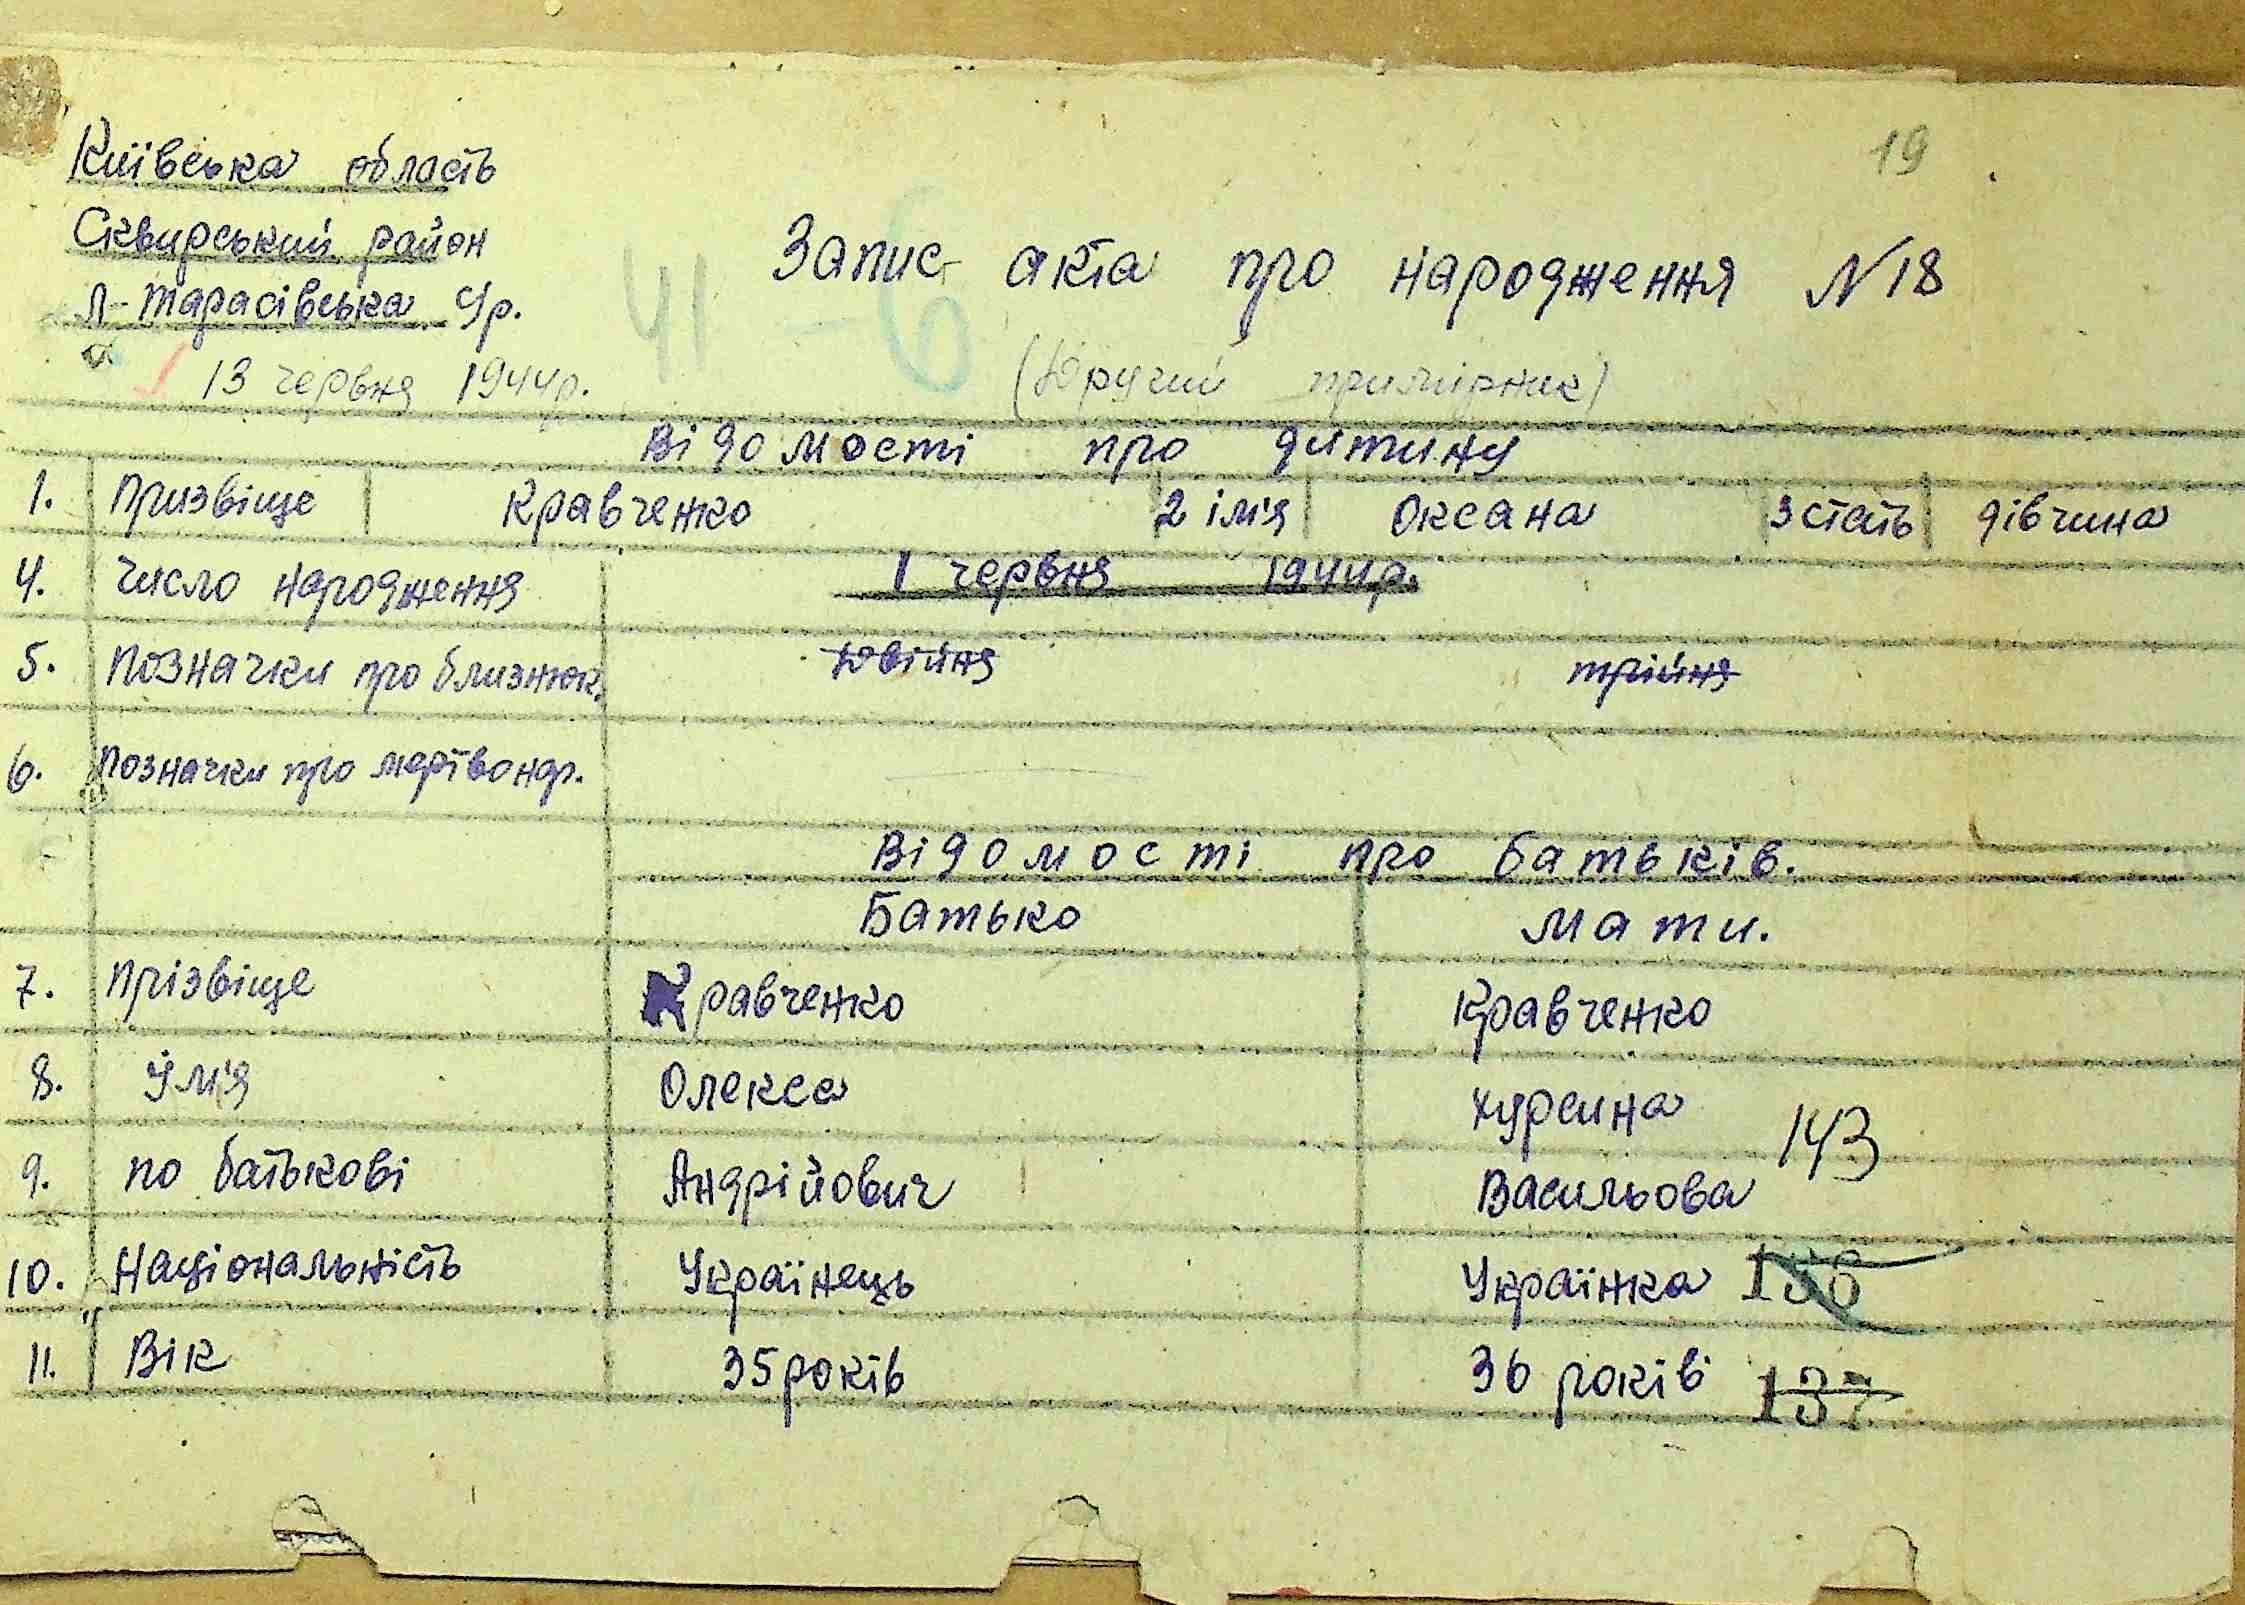 19
Київська область
Сквирський район
Л-Тарасівська Ур.
13 червня 1944р.
Запис акта про народження N18
(Другий примірник)
Відомості про дитину
1. Призвіще Кравченко 2 ім'я Оксана 3 стать дівчина
4. Число народження 1 червня 1944р.
5. Позначки про близнюк. двійня трійня
6. Позначки про мертвонар.
Відомості про батьків.
Батько Мати.
7. Прізвіще Кравченко Кравченко
8. Ўм'я Олекса Хурсина
143
9. по батькові Андрійович Васильова
10. Національність Українець Українка 136
11. Вік 35 років 36 років 137